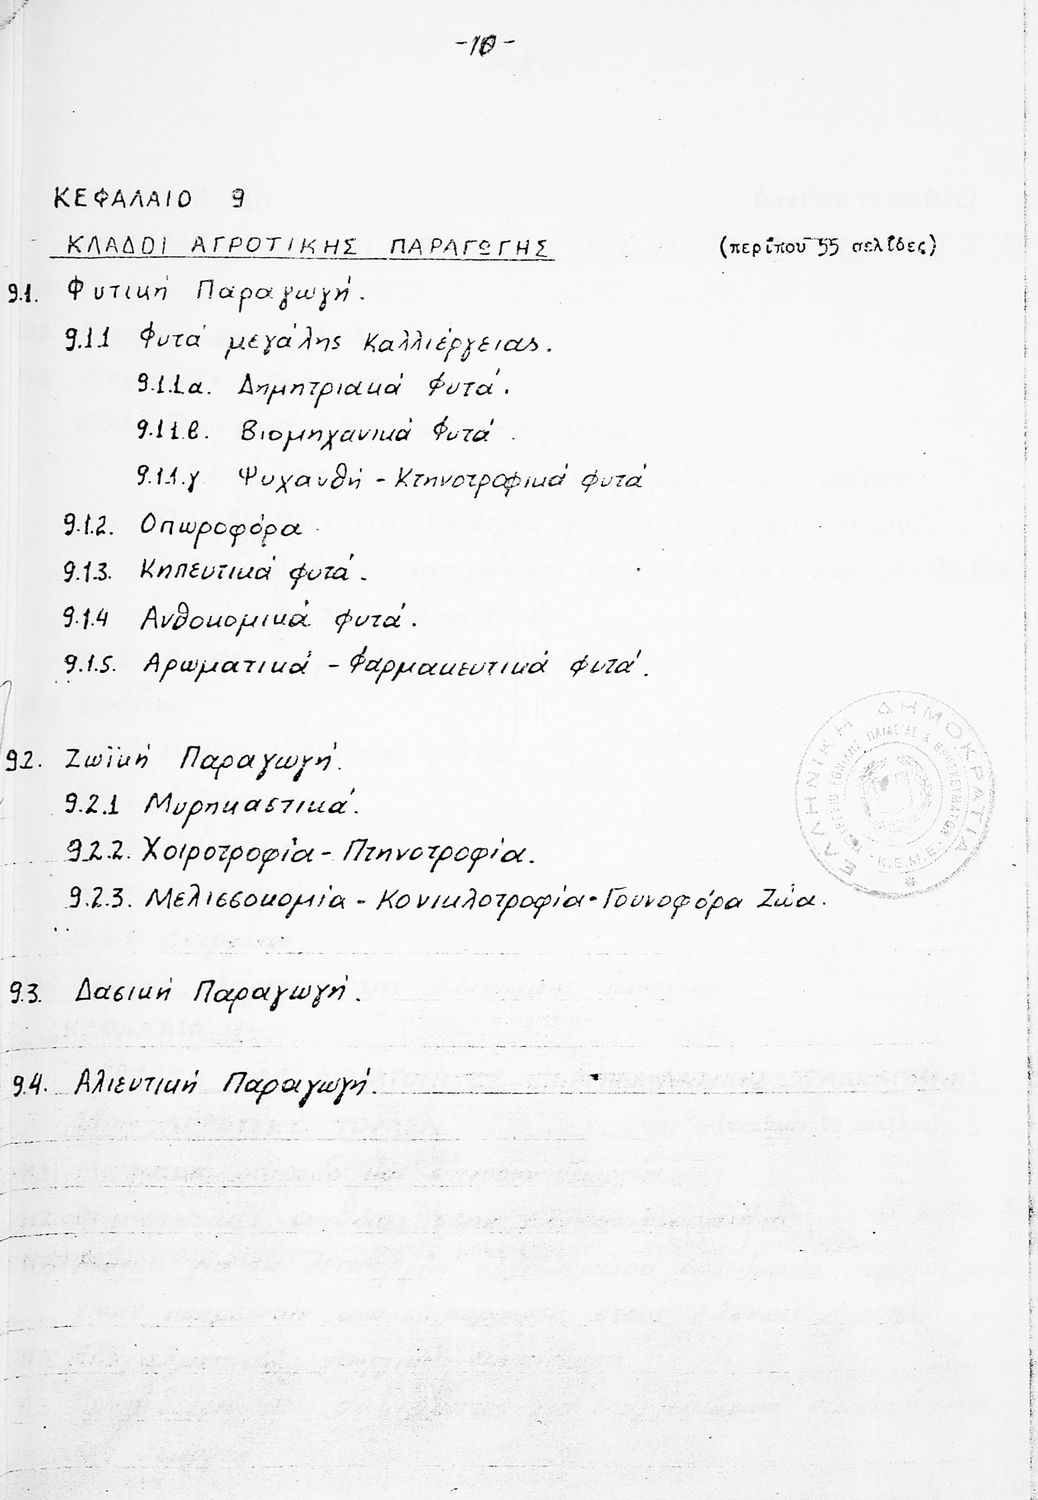 -10-
ΚΕΦΑΛΑΙΟ 9
ΚΛΑΔΟΙ ΑΓΡΟΤΙΚΗΣ ΠΑΡΑΓΩΓΗΣ (περίπου 55 σελίδες)
9.1. Φυτική Παραγωγή.
9.1.1 Φυτά μεγάλης Καλλιέργειας.
9.1.1.α. Δημητριακά Φυτά.
9.1.1.β. Βιομηχανικά Φυτά.
9.1.1.γ Ψυχανθή - Κτηνοτροφικά φυτά
9.1.2. Οπωροφόρα
9.1.3. Κηπευτικά φυτά.
9.1.4 Ανθοκομικά φυτά.
9.1.5. Αρωματικά - Φαρμακευτικά Φυτά.
9.2. Ζωϊκή Παραγωγή.
9.2.1 Μυρηκαστικά.
9.2.2. Χοιροτροφία - Πτηνοτροφία.
9.2.3. Μελισσοκομία - Κονικλοτροφία - Γουνοφόρα Ζώα.
9.3. Δασική Παραγωγή.
9.4. Αλιευτική Παραγωγή.
ΕΛΛΗΝΙΚΗ ΔΗΜΟΚΡΑΤΙΑ
Κ.Ε.Μ.Ε.